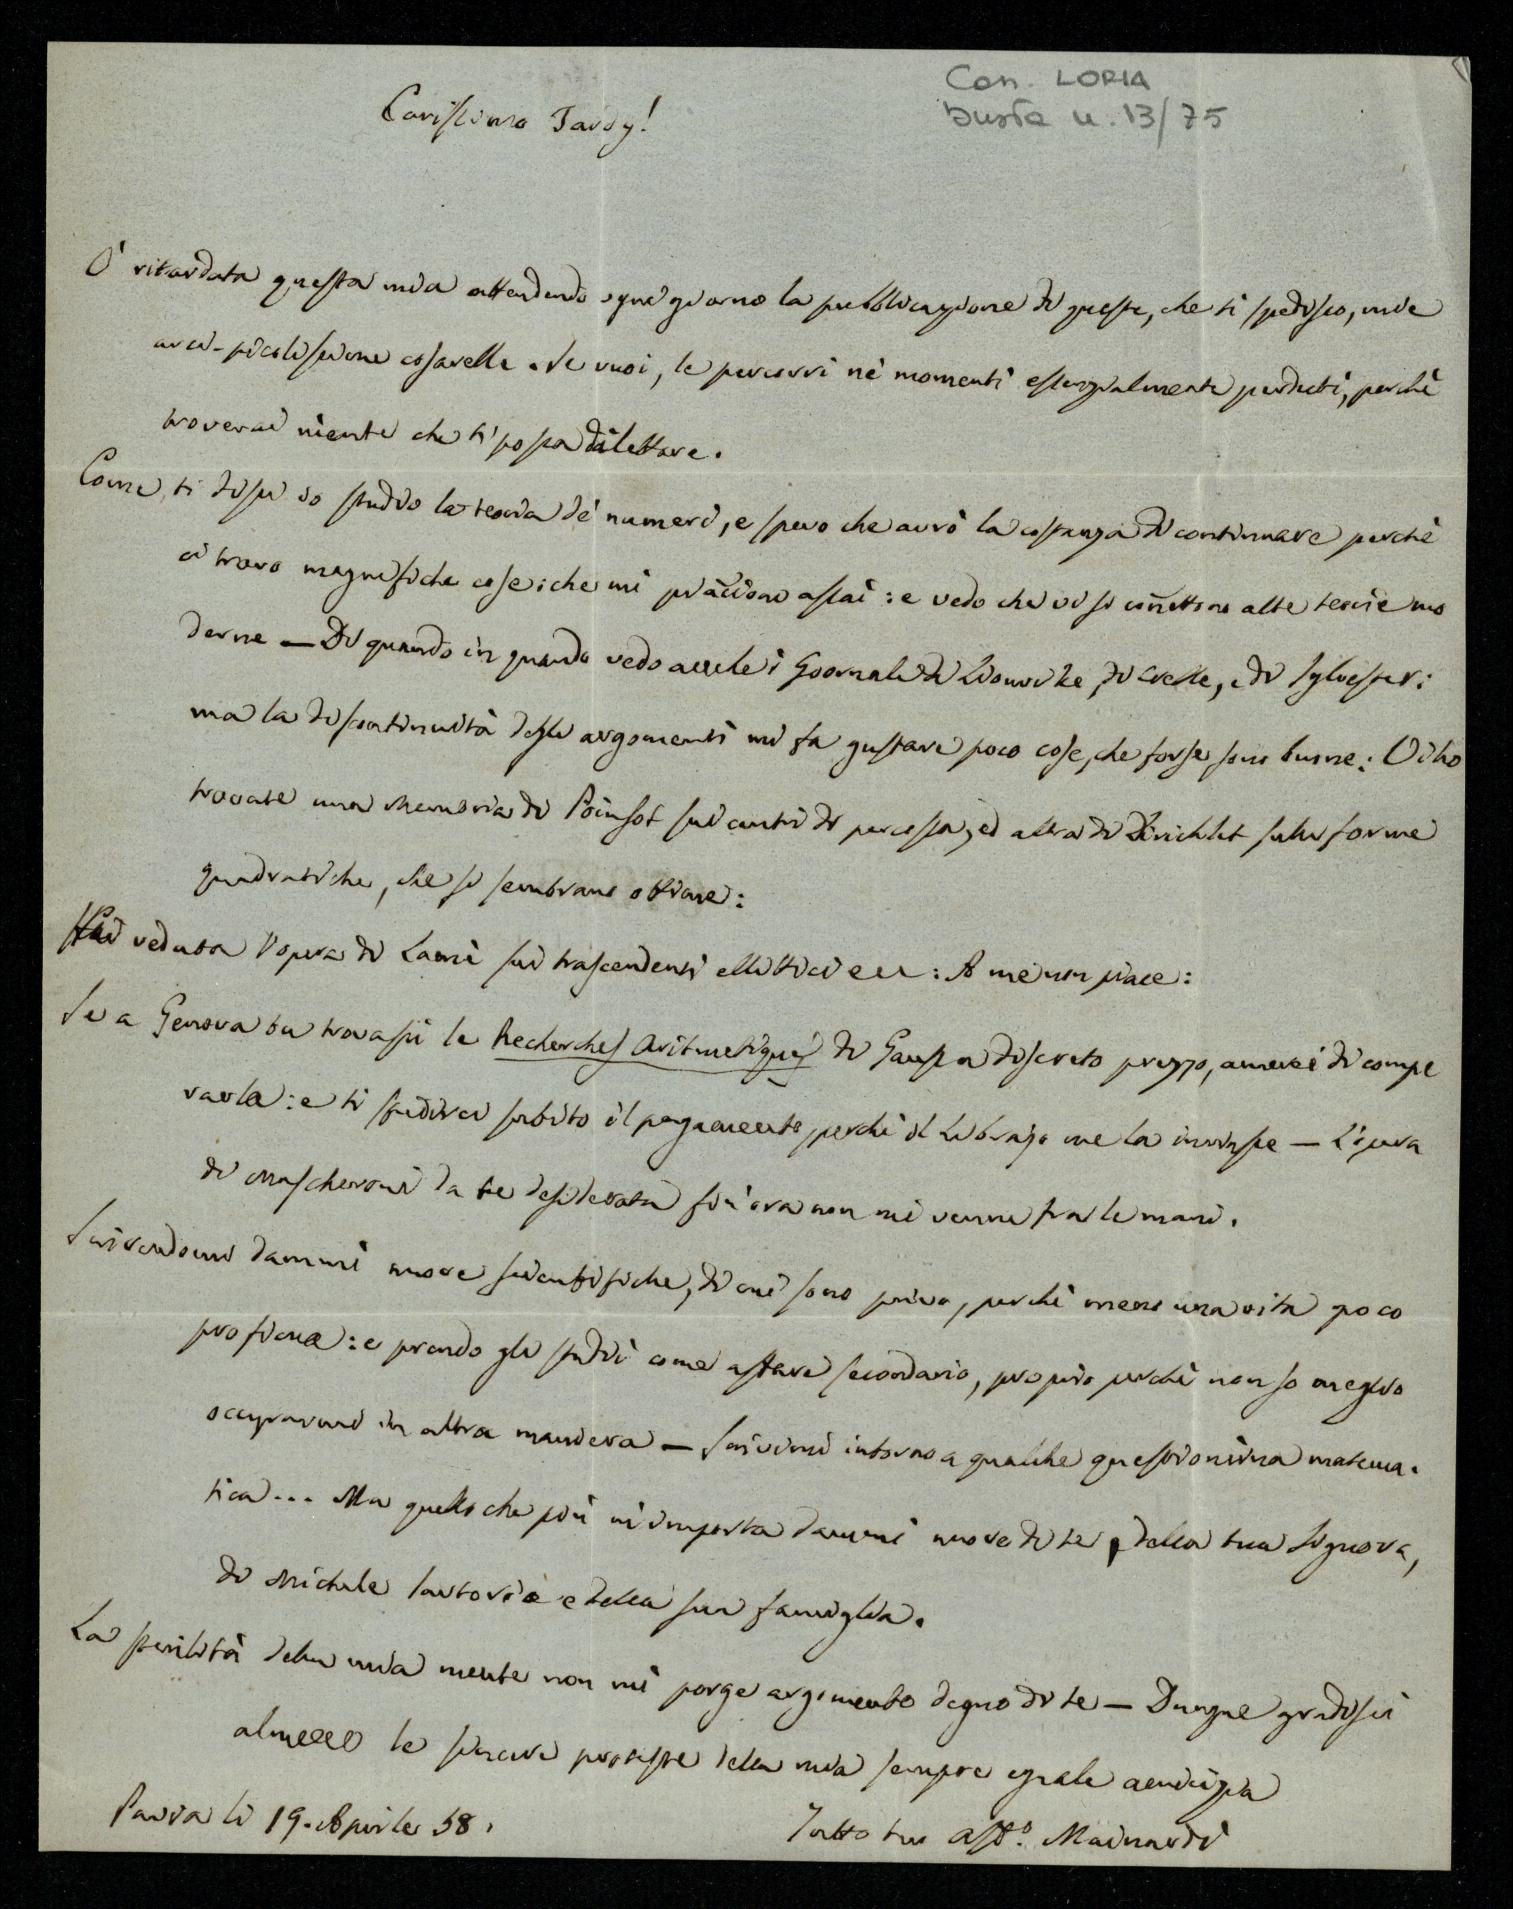 Con. LORIA
busta n. 13/75
Carissimo Tardy!
Ò ritardata questa mia attendendo ogni giorno la pubblicazione di queste, che ti spedisco, mie
arci-picolissime cosarelle. Se vuoi, le percorri nè momenti essenzialmente perduti, perchè
troverai niente che ti possa dilettare.
Come ti dissi io studio la teoria dè numeri, e spero che avrò la costanza di continuare perchè
ci trovo magnifiche cose: che mi piacciono assai: e vedo che vi si connettono alte teorie mo
derne — Di quando in quando vedo anche i Giornali di Liouville, di Crelle, e di Sylvester:
ma la discontinuità degli argomenti mi fa gustare poco cose, che forse sono buone: Vi ho
trovate una Memoria di Poinsot sui centri di percossa, ed altra di Dirichlet sulle forme
quadratiche, che si sembrano ottime:
Hai veduta l'opera di Lamè sui trascendenti ellittici ecc: A me non piace:
Se a Genova tu trovassi le Recherches aritmetiques di Gauss a discreto prezzo, amerei di compe
rarle: e ti spedirei subito il pagamento, perchè il Librajo me la  — L'opera
di Mascheroni da te desiderata fin'ora non mi venne tra le mani.
Scrivendomi dammi nuove scientifiche, di cui sono privo, perchè meno una vita poco
proficua: e prendo gli studii come affare secondario, proprio perchè non so meglio
occuparmi in altra maniera — Scrivimi intorno a qualche questioncina matema-
tica... Ma quello che più m'importa dammi nuove di te, della tua Signora,
di Michele  e della sua famiglia.
La sterilità della mia mente non mi porge argomento degno di te — Dunque gradisci
almeno le sincere proteste della mia sempre eguale amicizia
Pavia li 19. Aprile 58.
Tutto tuo aff.o Mainardi